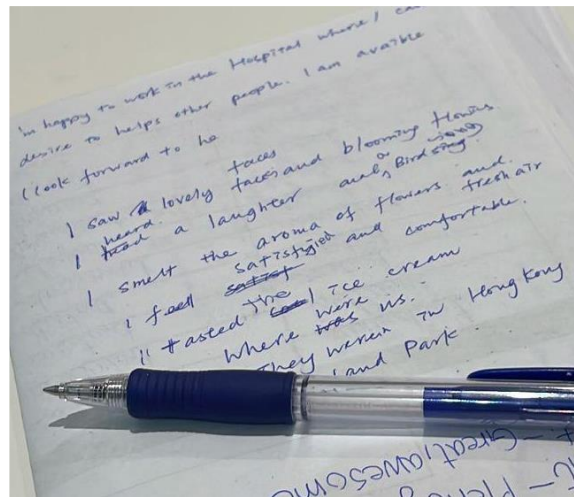 I'm happy to work in the Hospital where I ca
desire to helps other people. I am avaible
I look forward to he
faces
I saw lovely faces and blooming flowers.
heard
I a laughter and Bird sing.
I smelt the aroma of flowers and
fresh air
satisfied
I feel satisf and comfortable.
tasted the ice cream
were
Where was us.
They were in Hong Kong
land Park
- Great, awesome